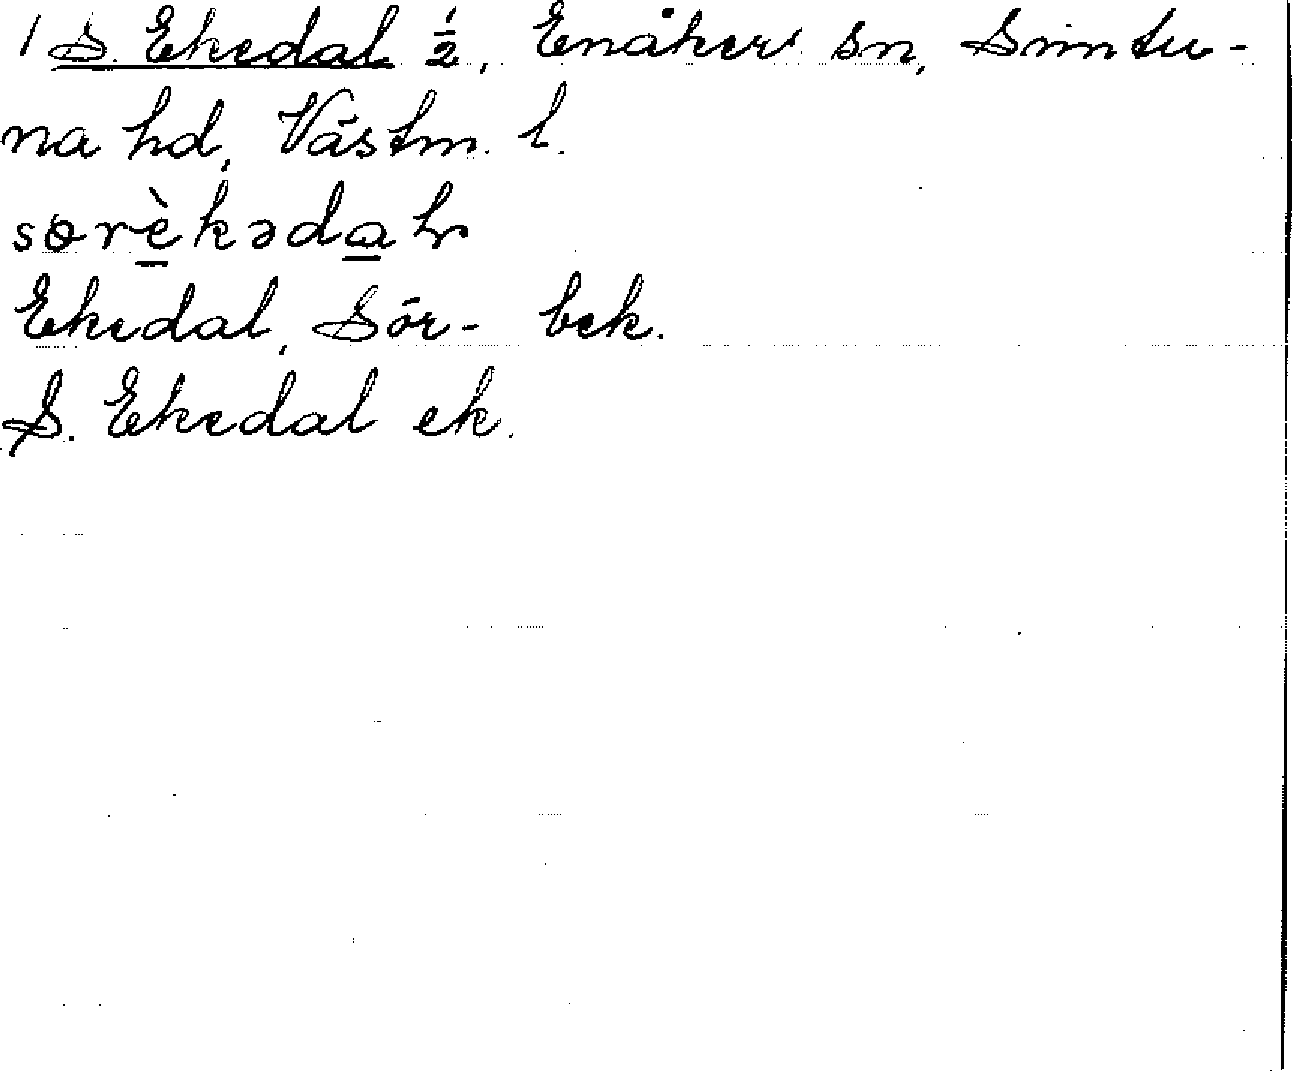 1 S. Ekedal ½, Enåker sn, Simtu-
na hd, Västm. l.
Ekedal, Sör- bek.
S. Ekedal ek.